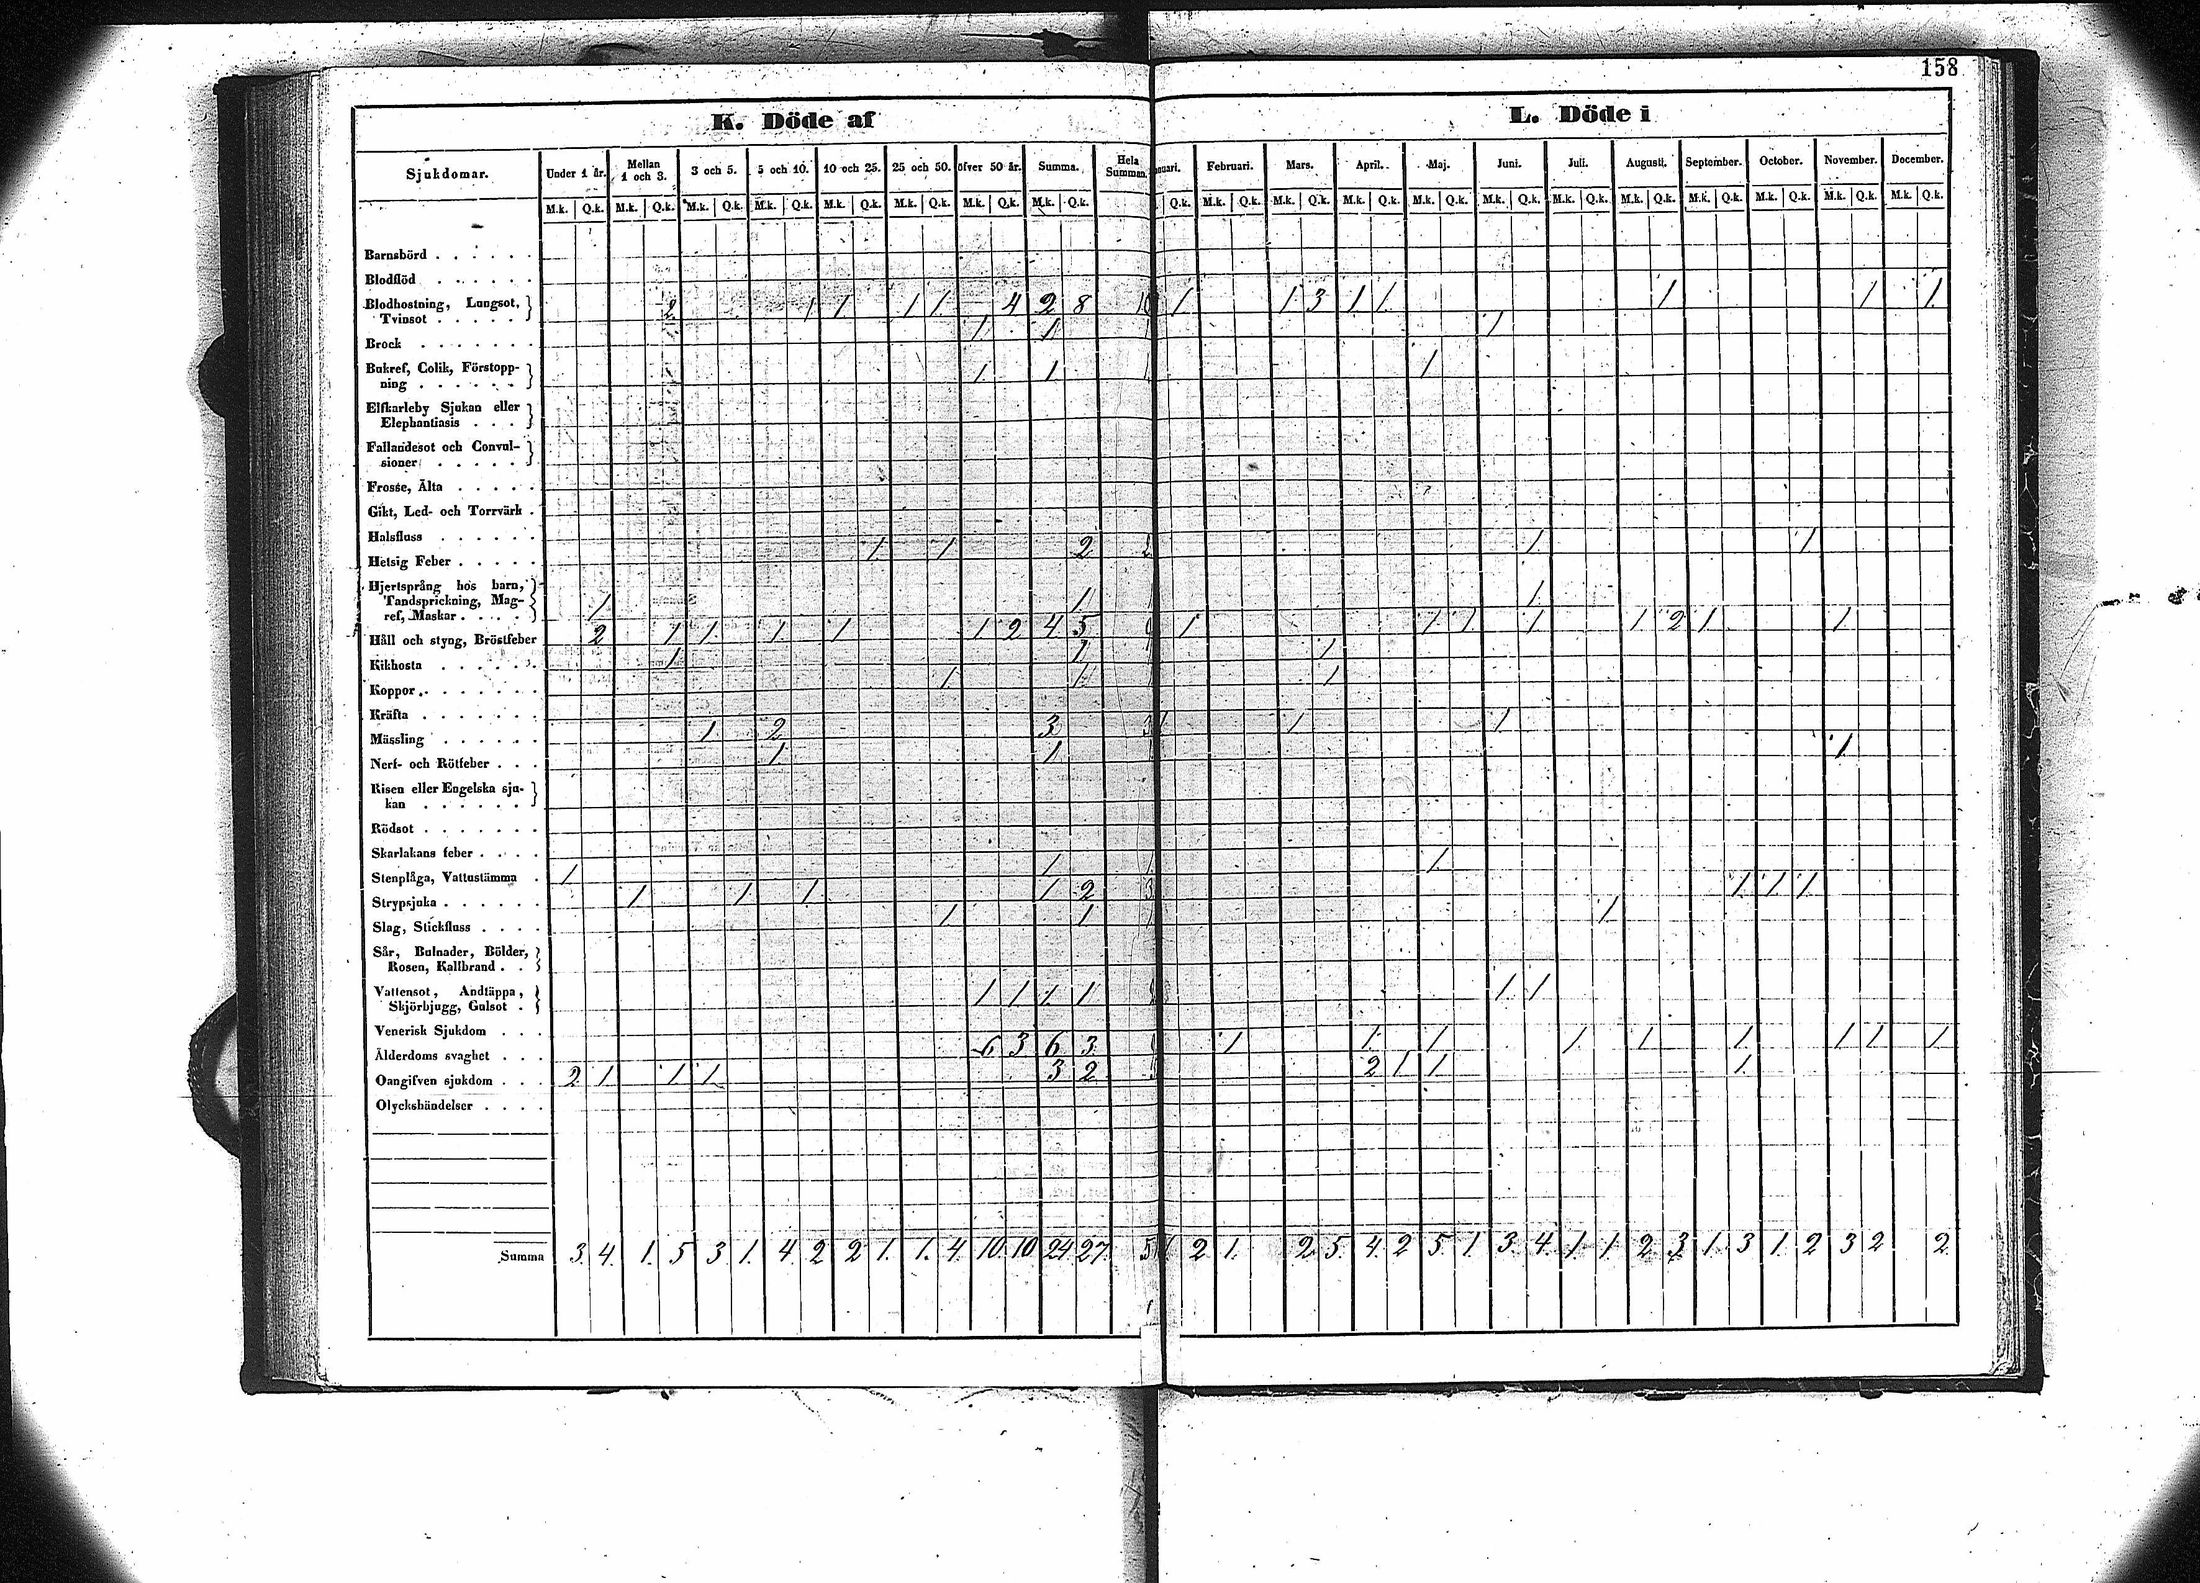 158
K. Döde af
L. Döde i
Sjukdomar. Under 1 år. Mellan 1 och 3. 3 och 5. 5 och 10. 10 och 25. 25 och 50. öfver 50 år. Summa. Hela Summan. nuari. Februari. Mars. April. Maj. Juni. Juli. Augusti. September. October. November. December.
M.k. Q.k. M.k. Q.k. M.k. Q.k. M.k. Q.k. M.k. Q.k. M.k. Q.k. M.k. Q.k. M.k. Q.k. Q.k. M.k. Q.k. M.k. Q.k. M.k. Q.k. M.k. Q.k. M.k. Q.k. M.k. Q.k. M.k. Q.k. M.k. Q.k. M.k. Q.k. M.k. Q.k. M.k. Q.k.
Barnsbörd . . . . . .
Blodflöd . . . . . .
Blodhostning, Lungsot,
Tvinsot . . . . . 2 1 1 1 1 4 2 8 10 1 1 3 1 1 1 1 1
Brock . . . . . . . 1 1 1 1
Bukref, Colik, Förstopp-
ning . . . . . . 1 1 1 1
Elfkarleby Sjukan eller
Elephantiasis . . .
Fallandesot och Convul-
sioner . . . . .
Frosse, Älta . . . . .
Gikt, Led- och Torrvärk .
Halsfluss . . . . . .
Hetsig Feber . . . . . 1 1 2 2 1 1
Hjertsprång hos barn,
Tandsprickning, Mag-
ref, Maskar . . . . 1 1 1 1
Håll och styng, Bröstfeber 2 1 1 1 1 1 2 4 5 9 1 1 1 1 1 2 1 1
Kikhosta . . . . . . 1 1 1 1
Koppor . . . . . . . 1 1 1 1
Kräfta . . . . . . .
Mässling . . . . . 1 2 3 3 1 1 1
Nerf- och Rötfeber . . . 1 1 1 1
Risen eller Engelska sju-
kan . . . . . .
Rödsot . . . . . . .
Skarlakans feber . . . .
Stenplåga, Vattustämma . 1 1 1 1
Strypsjuka . . . . . . 1 1 1 1 2 3 1 1 1
Slag, Stickfluss . . . . 1 1 1 1
Sår, Bulnader, Bölder,
Rosen, Kallbrand . .
Vattensot, Andtäppa,
Skjörbjugg, Gulsot . 1 1 1 1 1 1
Venerisk Sjukdom . . .
Ålderdoms svaghet . . . 6 3 6 3 1 1 1 1 1 1 1 1 1
Oangifven sjukdom . . . 2 1 1 1 3 2 2 1 1 1
Olyckshändelser . . . .
Summa 3 4 1 5 3 1 4 2 2 1 1 4 10 10 24 27 51 2 1 2 5 4 2 5 1 3 4 1 1 2 3 1 3 1 2 3 2 2